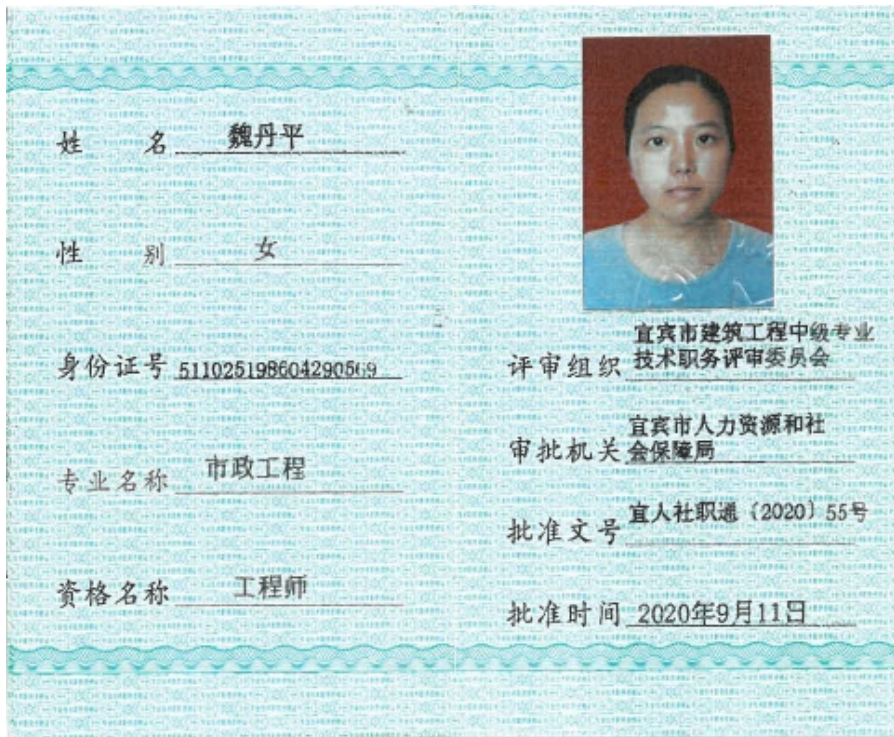 姓名 魏丹平
性别 女
身份证号 511025198604290569
专业名称 市政工程
资格名称 工程师
评审组织 宜宾市建筑工程中级专业
技术职务评审委员会
审批机关 宜宾市人力资源和社
会保障局
批准文号 宜人社职通〔2020〕55号
批准时间 2020年9月11日